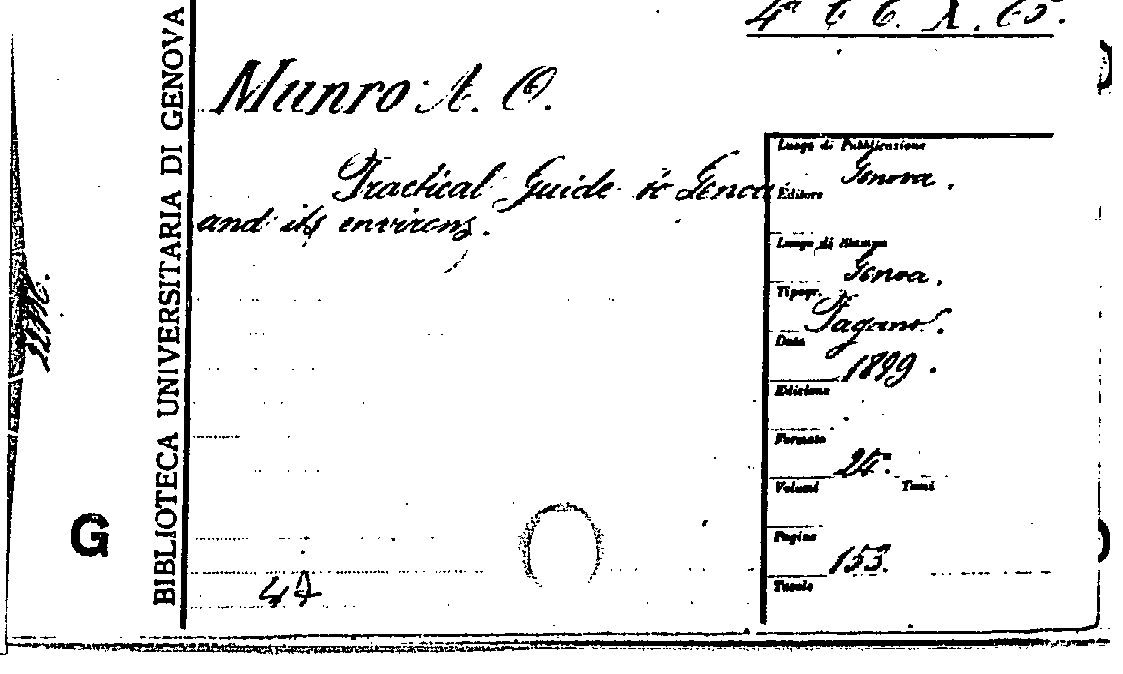 Munro A. O.
Practical Guide to Genoa
and its environs.
BIBLIOTECA UNIVERSITARIA DI GENOVA
G
Luogo di Pubblicazione
Genova.
Editore
Luogo di Stampa
Genova.
Tipogr.
Pagano.
Data
1899.
Edizione
Formato
Volumi Tomi
Pagine
153.
Tavole